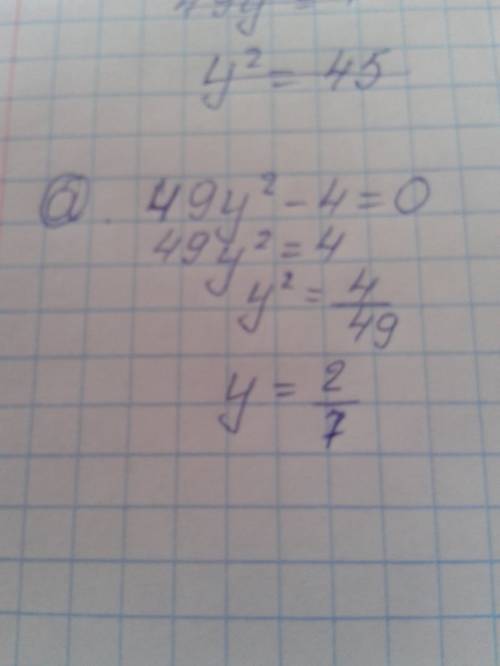 49y =
y² = 45
а. 49y² - 4 = 0
49y² = 4
y² = 4/49
y = 2/7